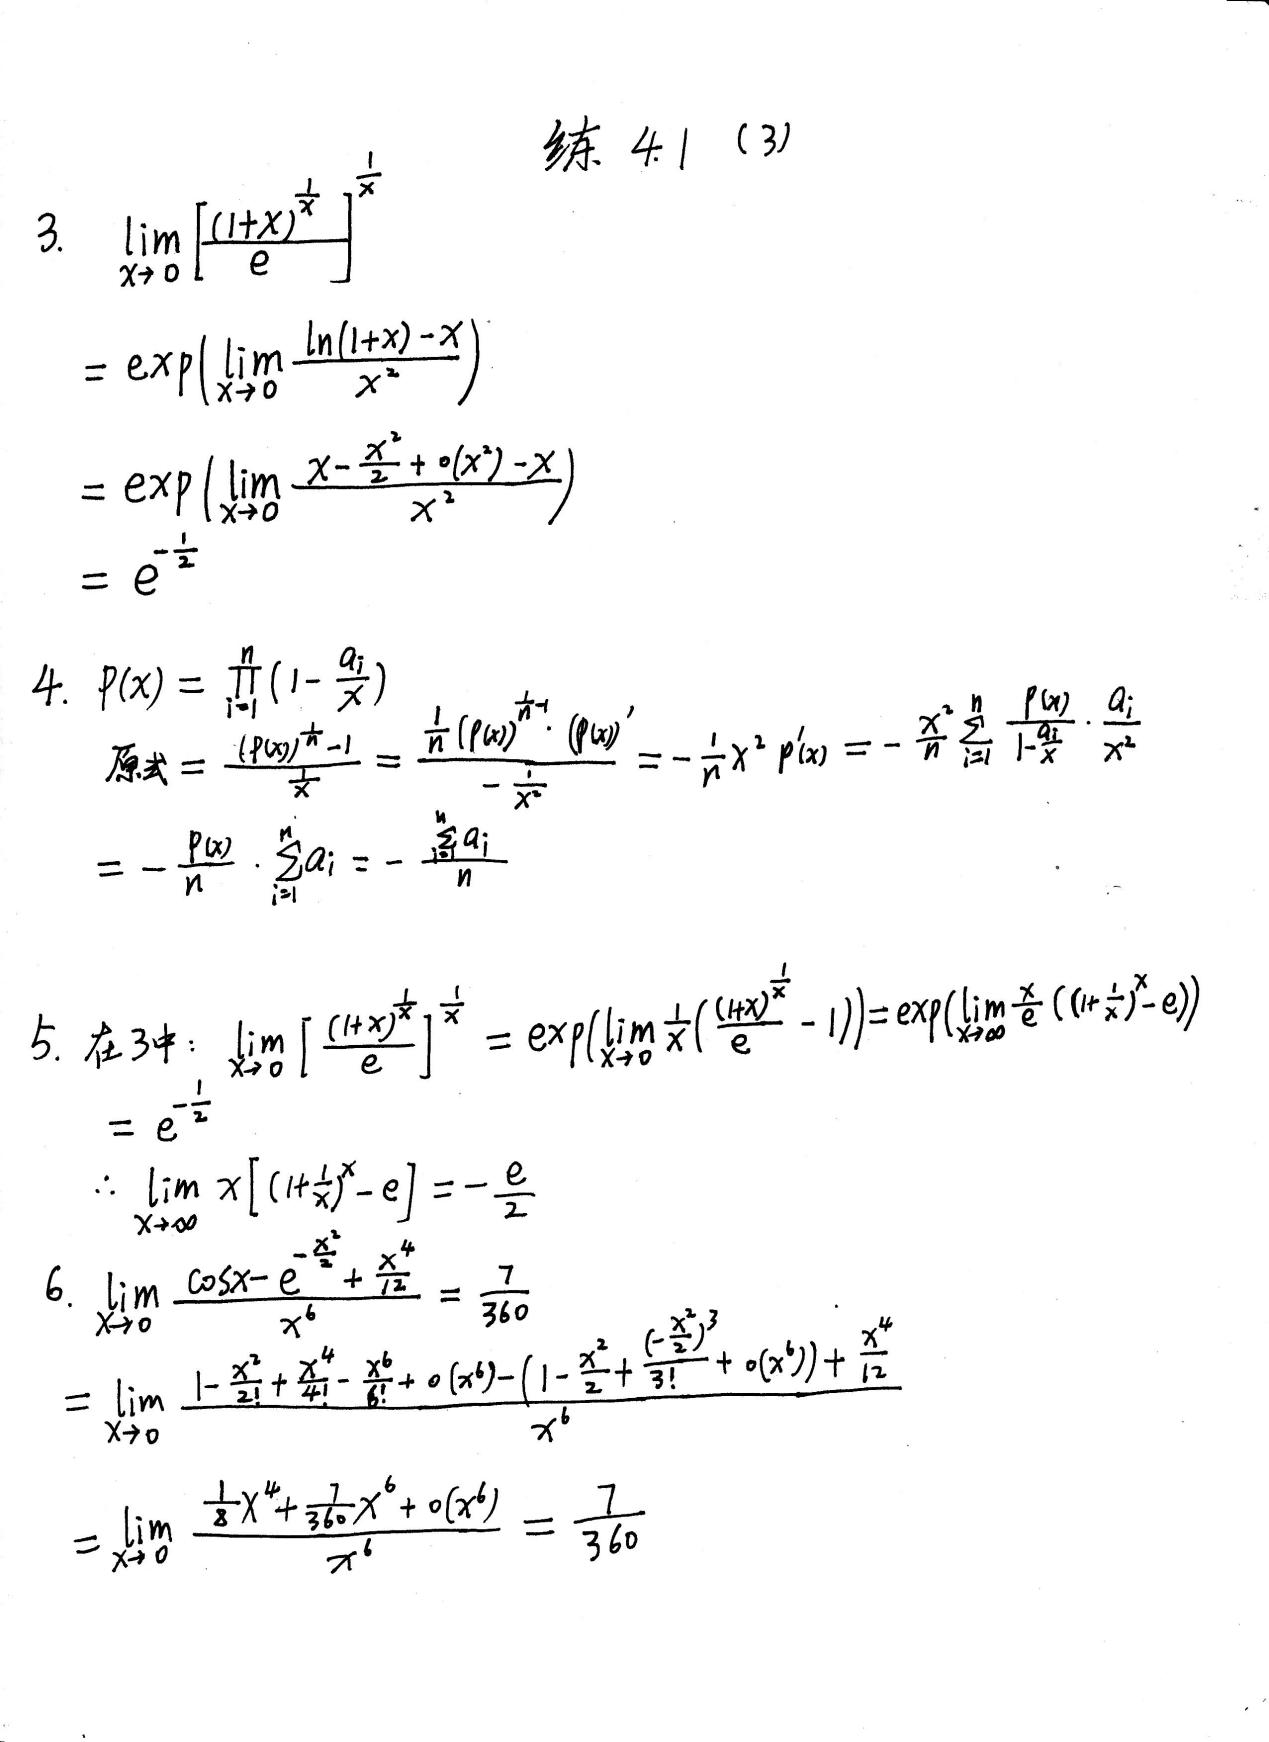 练 4.1 (3)
3. $\lim_{x \to 0} \left[ \frac{(1+x)^{\frac{1}{x}}}{e} \right]^{\frac{1}{x}}$
$= \exp\left( \lim_{x \to 0} \frac{\ln(1+x) - x}{x^2} \right)$
$= \exp\left( \lim_{x \to 0} \frac{x - \frac{x^2}{2} + o(x^2) - x}{x^2} \right)$
$= e^{-\frac{1}{2}}$
4. $P(x) = \prod_{i=1}^{n} (1 - \frac{a_i}{x})$
原式 $= \frac{(P(x))^{\frac{1}{n}} - 1}{\frac{1}{x}} = \frac{\frac{1}{n} (P(x))^{\frac{1}{n}-1} \cdot (P(x))'}{-\frac{1}{x^2}} = -\frac{1}{n} x^2 P'(x) = -\frac{x^2}{n} \sum_{i=1}^{n} \frac{P(x)}{1 - \frac{a_i}{x}} \cdot \frac{a_i}{x^2}$
$= -\frac{P(x)}{n} \cdot \sum_{i=1}^{n} a_i = -\frac{\sum_{i=1}^{n} a_i}{n}$
5. 在3中: $\lim_{x \to 0} \left[ \frac{(1+x)^{\frac{1}{x}}}{e} \right]^{\frac{1}{x}} = \exp\left( \lim_{x \to 0} \frac{1}{x} \left( \frac{(1+x)^{\frac{1}{x}}}{e} - 1 \right) \right) = \exp\left( \lim_{x \to \infty} \frac{x}{e} \left( (1+\frac{1}{x})^x - e \right) \right)$
$= e^{-\frac{1}{2}}$
$\therefore \lim_{x \to \infty} x \left[ (1+\frac{1}{x})^x - e \right] = -\frac{e}{2}$
6. $\lim_{x \to 0} \frac{\cos x - e^{-\frac{x^2}{2}} + \frac{x^4}{12}}{x^6} = \frac{7}{360}$
$= \lim_{x \to 0} \frac{1 - \frac{x^2}{2!} + \frac{x^4}{4!} - \frac{x^6}{6!} + o(x^6) - (1 - \frac{x^2}{2} + \frac{(-\frac{x^2}{2})^3}{3!} + o(x^6)) + \frac{x^4}{12}}{x^6}$
$= \lim_{x \to 0} \frac{\frac{1}{8} x^4 + \frac{7}{360} x^6 + o(x^6)}{x^6} = \frac{7}{360}$